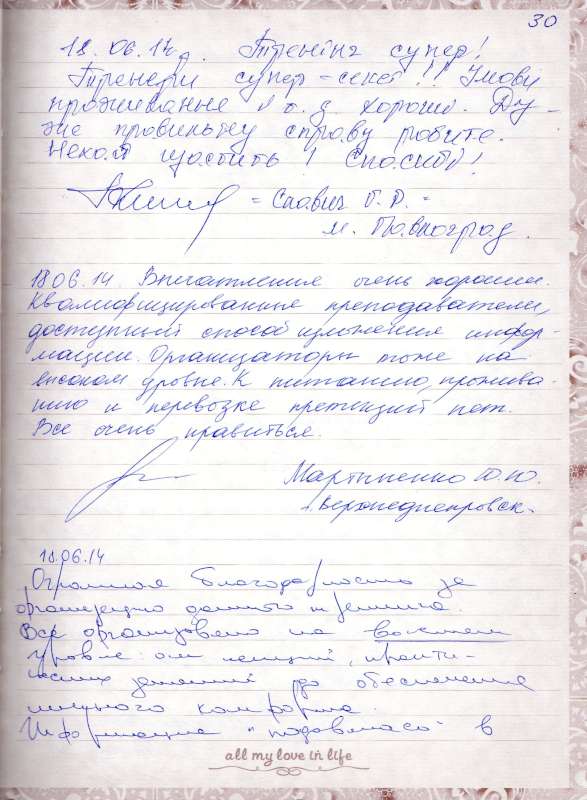 30
18.06.14р. Тренінг супер!
Тренери супер-секст!! Умови
проживання и т.д. хороші. Ду-
же правильну справу робите.
Нехай щастить! Спасибі!
= Славич Г.Р. =
м. Павлоград.
18.06.14. Впечатления очень хорошии.
Квалифицированные преподаватели,
доступный способ изложения инфор-
мации. Организаторы тоже на
высоком уровне. К питанию, прожива-
нию и перевозке претензий нет.
Все очень нравиться.
Мартыненко Ю.Ю.
г. Верхнеднепровск.
18.06.14
Огромная благодарность за
организацию данного тренинга.
Все организовано на высоком
уровне: от лекций, практи-
ческих занятий до обеспечения
личного комфорта.
Информация "подавалась" в
all my love in life